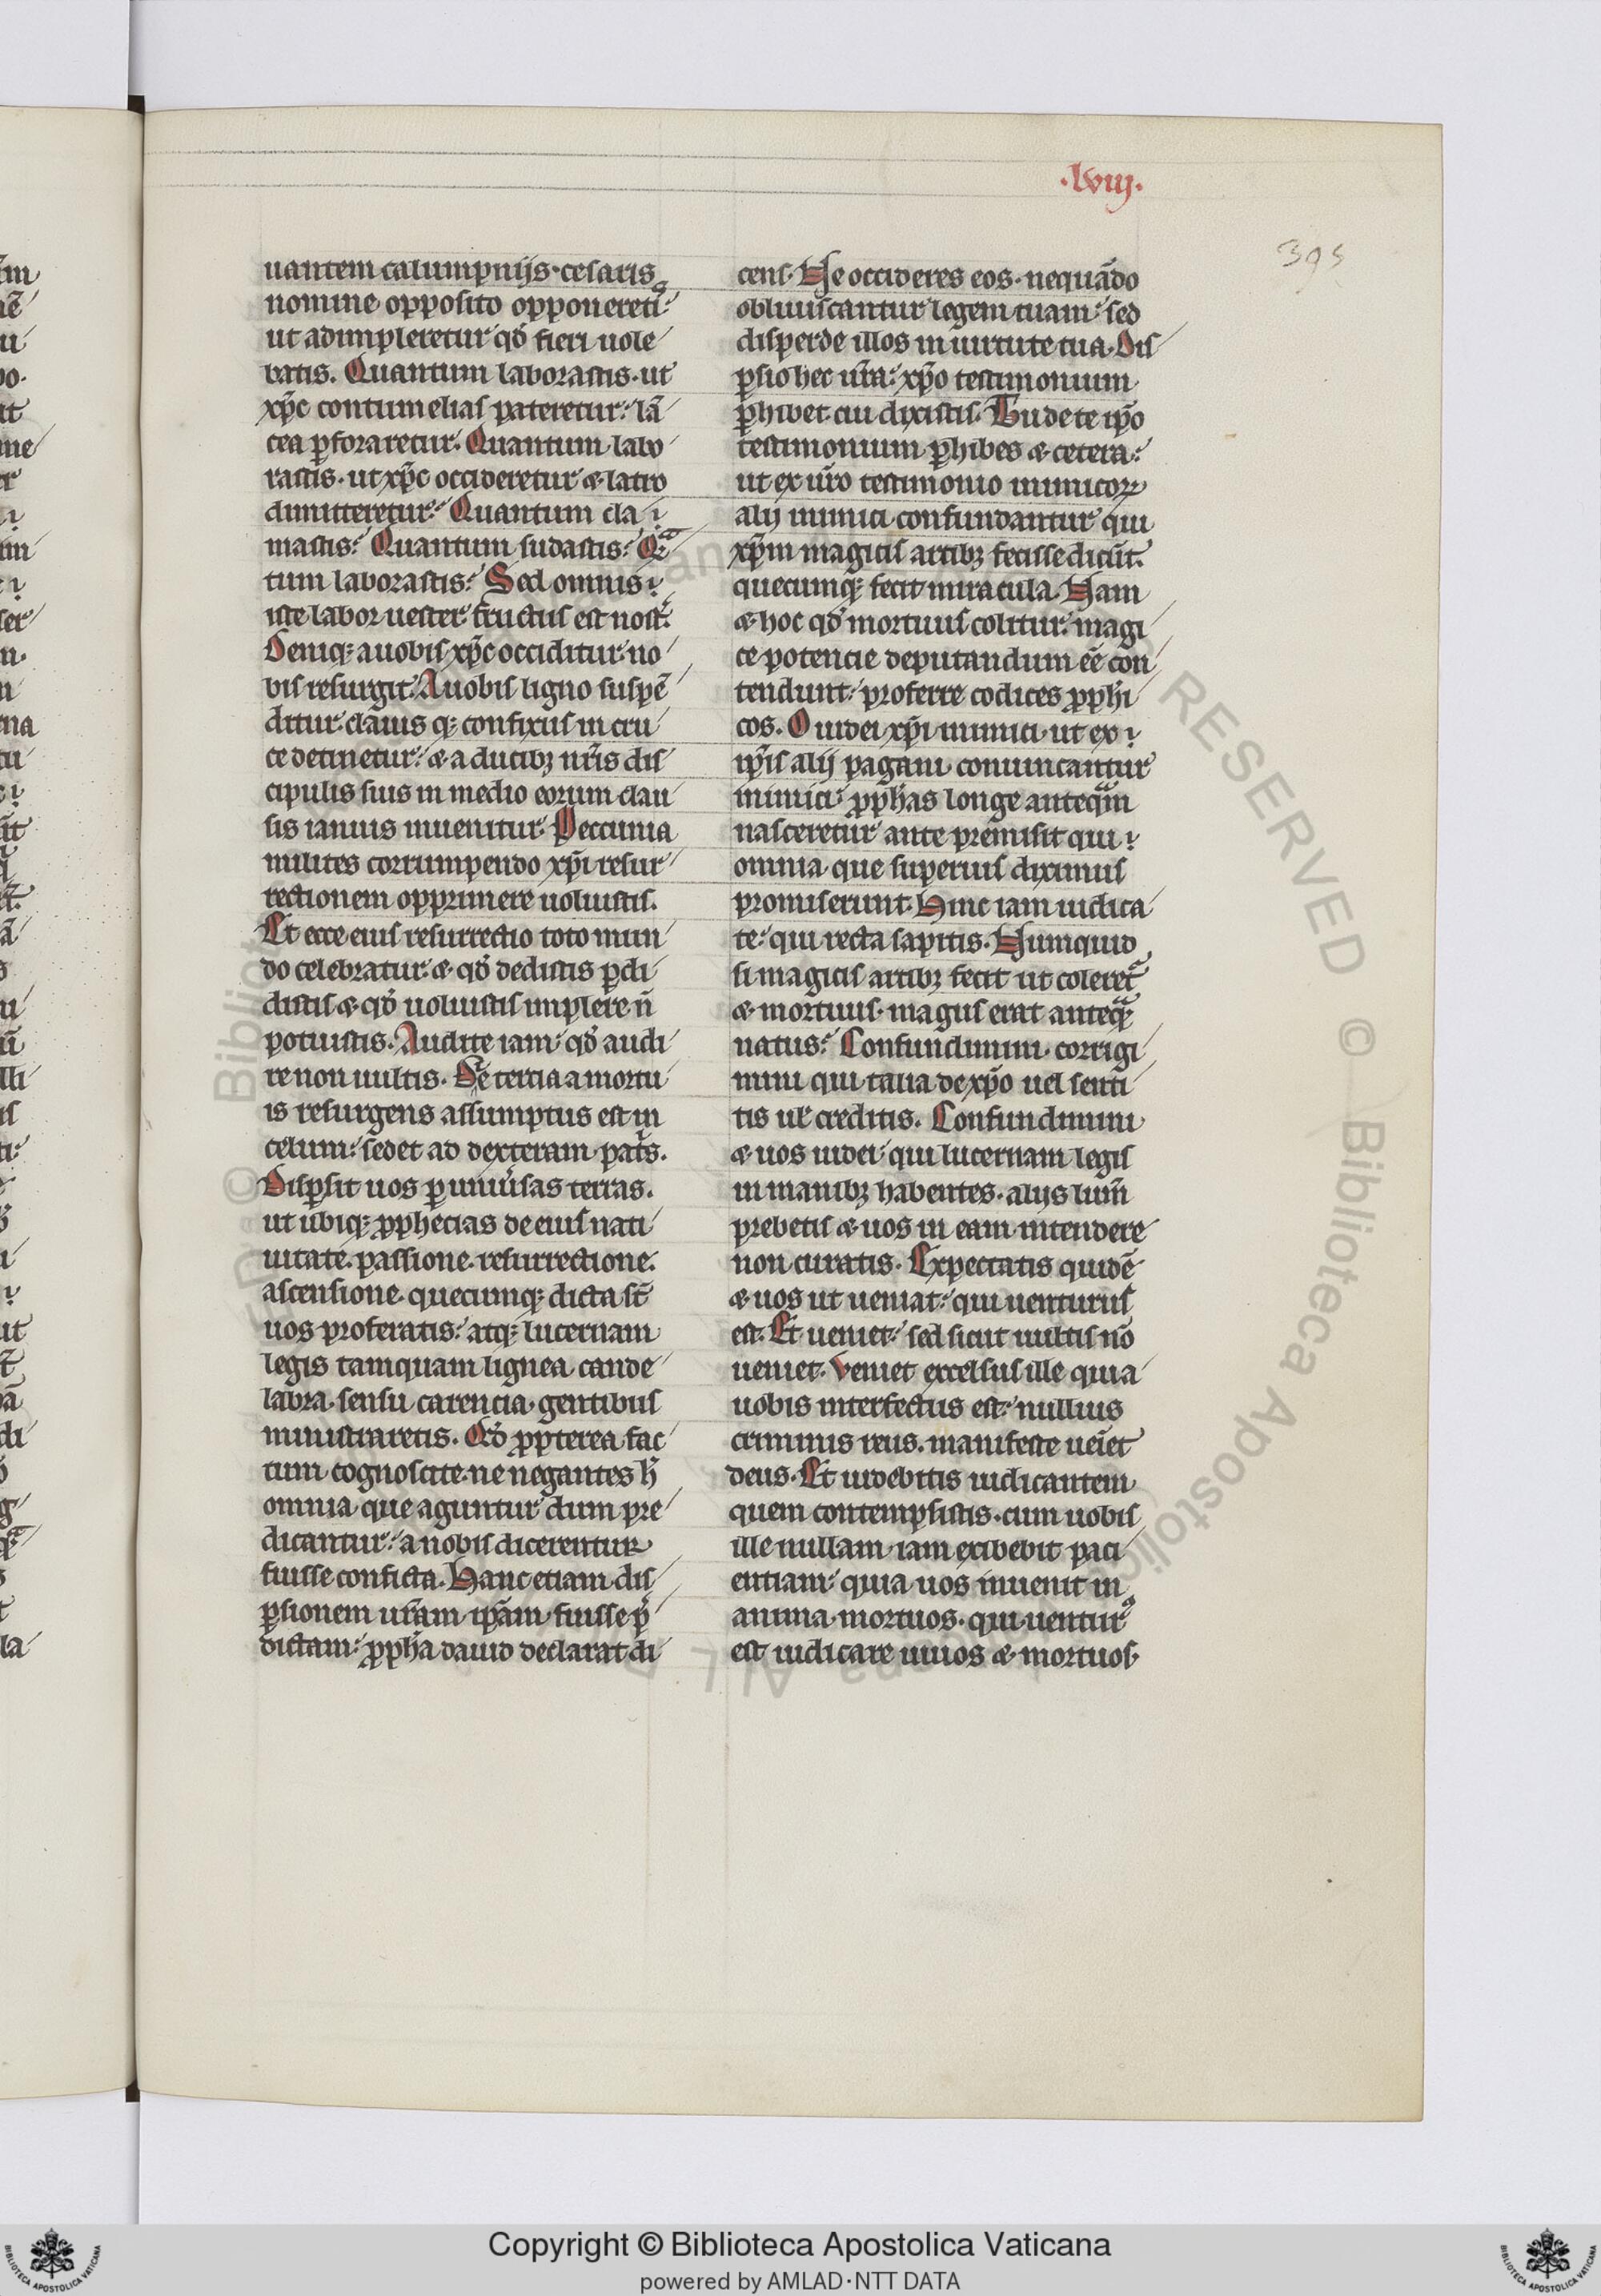 .lviij.
395
uantem calumpnijs. cesaris
nomine opposito opponeretᷣ
ut adimpleretur qđ fieri uole
batis. Quantum laborastis. ut
xp̄c contumelias pateretur. lā
cea ꝑforaretur. Quantum labo
rastis. ut xp̄c occideretur & latro
dimitteretur. Quantum cla
mastis. Quantum sudastis. Qᵃ̄
tum laborastis. Sed omnis
iste labor uester fructus est nost̄.
Deniqꝫ a uobis xp̄c occiditur no
bis resurgit. A uobis ligno suspē
ditur clauis qꝫ confixus in cru
ce detinetur. & a ducibꝫ nr̄is dis
cipulis suis in medio eorum clau
sis ianuis inuenitur. Peccunia
milites corrumpendo xp̄i resur
rectionem opprimere uoluistis.
Et ecce eius resurrectio toto mun
do celebratur. & qđ dedistis ꝑdi
distis & qđ uoluistis implere n̄
potuistis. Audite iam qđ audi
re non uultis. Die tercia a mortu
is resurgens assumptus est in
celum. sedet ad dexteram pat̄s.
Disꝑsit uos ꝑ uniūsas terras.
ut ubiqꝫ ꝓphecias de eius nati
uitate. passione. resurrectione.
ascensione. quecumqꝫ dicta st̄
uos proferatis. atqꝫ lucernam
legis tamquam lignea cande
labra. sensu carencia. gentibus
ministraretis. Qđ ꝓpterea fac
tum cognoscite. ne negantes h̄
omnia que aguntur dum pre
dicantur. a nobis dicerentur
fuisse conficta. Hanc etiam dis
ꝑsionem ur̄am ip̄am fuisse p̄
dictam. ꝓph̄a dauid declarat di
cens. Ne occideres eos. nequādo
obliuiscantur legem tuam. sed
disperde illos in uirtute tua. Dis
ꝑsio hec ur̄a. xp̄o testimonium
ꝑhibet cui dixistis. Tu de te ip̄o
testimonium ꝑhibes & cetera.
ut ex ur̄o testimonio inimicoꝝ
alij inimici confundantur qui
xp̄m magicis artibꝫ fecisse dicūt.
quecumqꝫ fecit miracula. Nam
& hoc qđ mortuus colitur. magi
ce potencie deputandum eē con
tendunt. proferte codices ꝓph̄i
cos. O iudei xp̄i inimici. ut ex
ip̄is alij pagani conuincantur
inimici. ꝓph̄as longe anteqᵃm
nasceretur ante premisit qui
omnia que superius diximus
promiserunt. Hinc iam iudica
te. qui recta sapitis. Numquid
si magicis artibꝫ fecit ut coleretᷣ
& mortuus. magus erat anteqᵃꝫ
natus. Confundimini. corrigi
mini qui talia de xp̄o uel senti
tis ul̄ creditis. Confundimini
& uos iudei. qui lucernam legis
in manibꝫ habentes. alijs lum̄
prebetis & uos in eam intendere
non curatis. Expectatis quidē
& uos ut ueniat. qui uenturus
est. Et ueniet. sed sicut uultis nō
ueniet. Veniet excelsus ille quia
uobis interfectus est. nullius
criminis reus. manifeste ueīet
deus. Et uidebitis iudicantem
quem contempsistis. cum uobis
ille nullam iam exibebit paci
entiam. quia uos inuenit in
anima mortuos. qui uenturꝰ
est iudicare uiuos & mortuos.
Copyright © Biblioteca Apostolica Vaticana
powered by AMLAD·NTT DATA